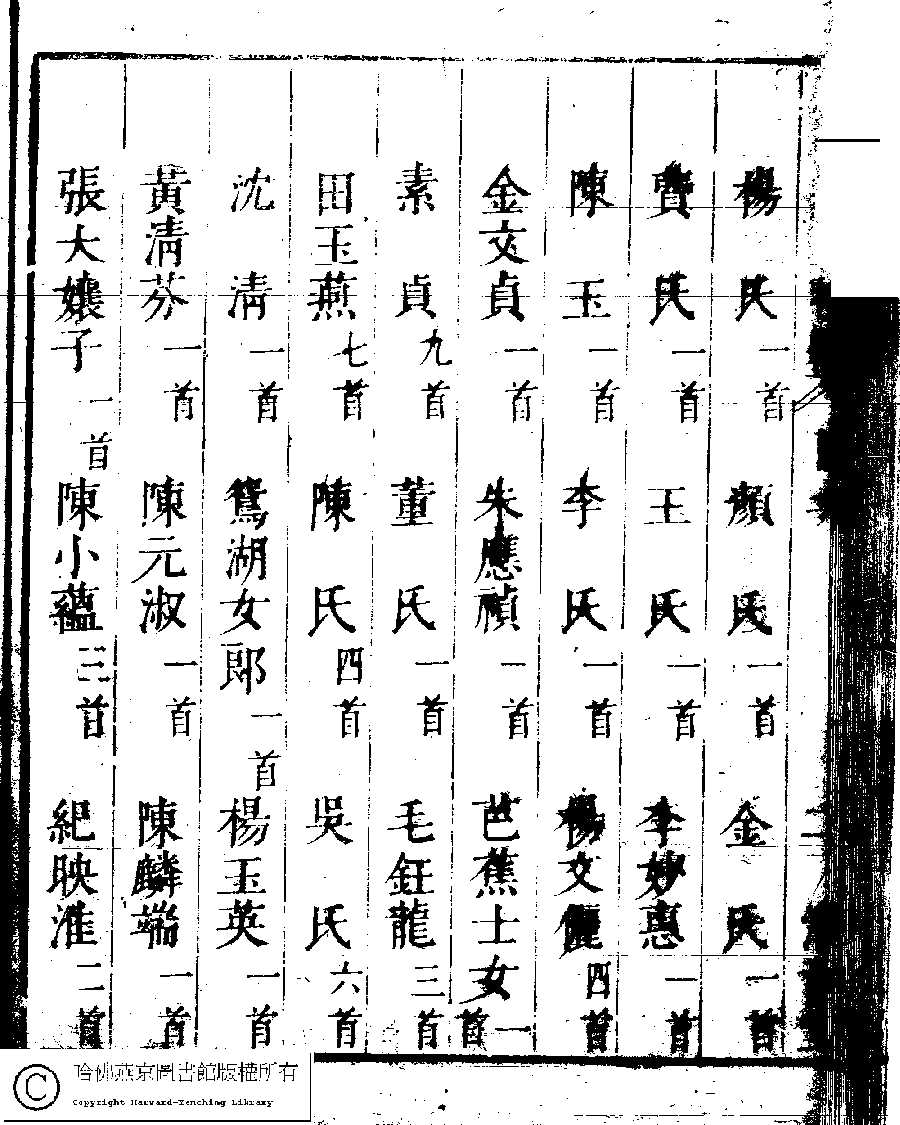 楊　氏一首　顏　氏一首　金　氏一首
竇　氏一首　王　氏一首　李妙惠一首
陳　玉一首　李　氏一首　楊文儷四首
金文貞一首　朱應禎一首　芭蕉士女一首
素　貞九首　董　氏一首　毛鈺龍三首
田玉燕七首　陳　氏四首　吳　氏六首
沈　清一首　鴛湖女郎一首　楊玉英一首
黃清芬一首　陳元淑一首　陳麟端一首
張大孃子一首　陳小蘊三首　紀映淮二首
哈佛燕京圖書館版權所有
Copyright Harvard-Yenching Library